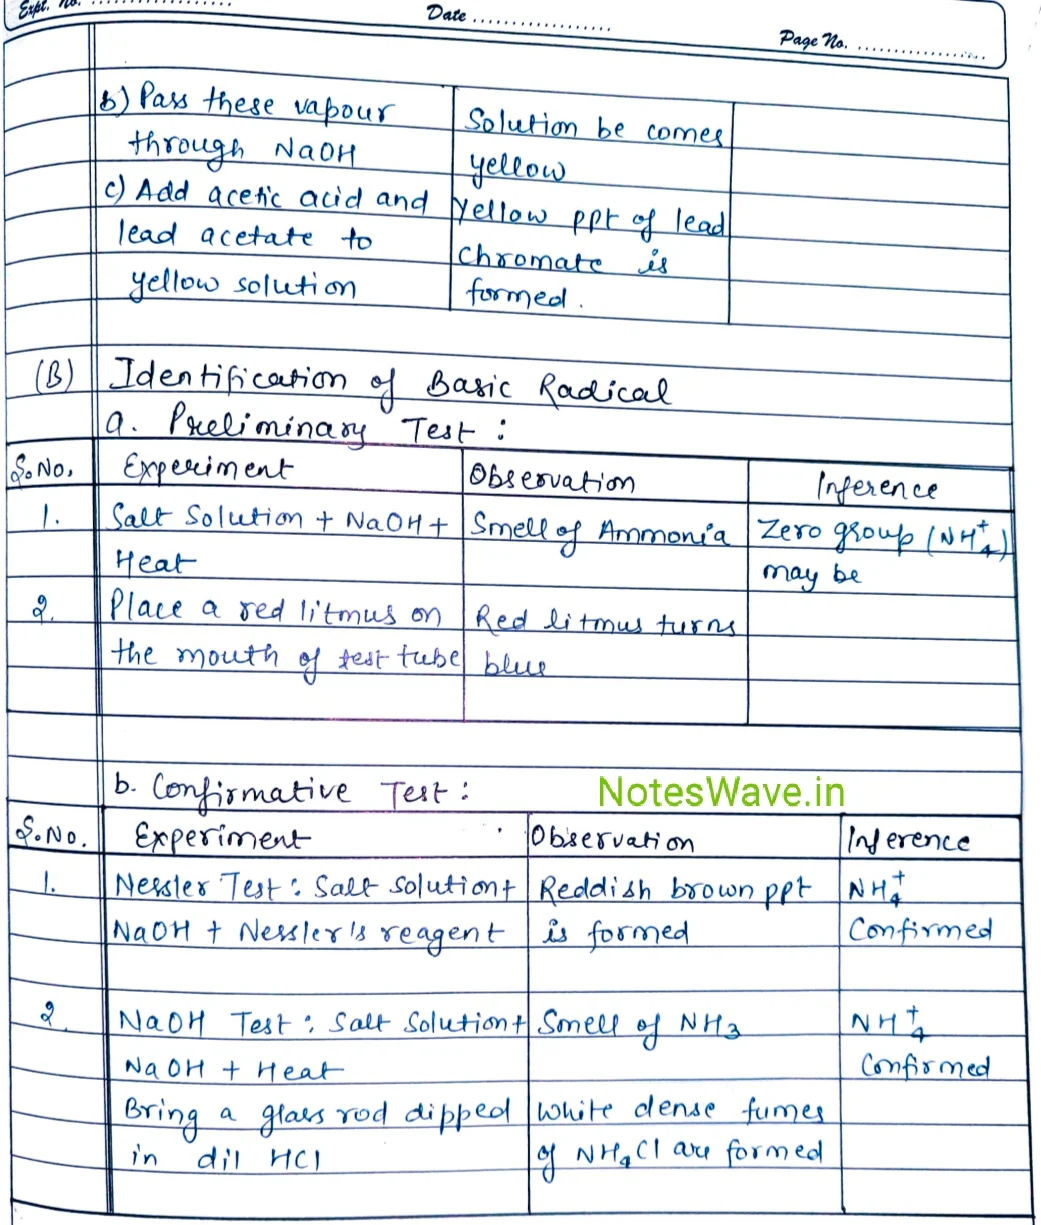 Expt. No. ....................
Date ....................
Page No. ....................
b) Pass these vapour
through NaOH
Solution be comes
yellow
c) Add acetic acid and
lead acetate to
yellow solution
Yellow ppt of lead
chromate is
formed.
(B) Identification of Basic Radical
a. Preliminary Test :
S.No. Experiment Observation Inference
1. Salt Solution + NaOH + Smell of Ammonia Zero group (NH4+)
Heat may be
2. Place a red litmus on Red litmus turns
the mouth of test tube blue
b. Confirmative Test :
NotesWave.in
S.No. Experiment Observation Inference
1. Nessler Test : Salt solution + Reddish brown ppt NH4+
NaOH + Nessler's reagent is formed Confirmed
2. NaOH Test : Salt Solution + Smell of NH3 NH4+
NaOH + Heat Confirmed
Bring a glass rod dipped White dense fumes
in dil HCl of NH4Cl are formed